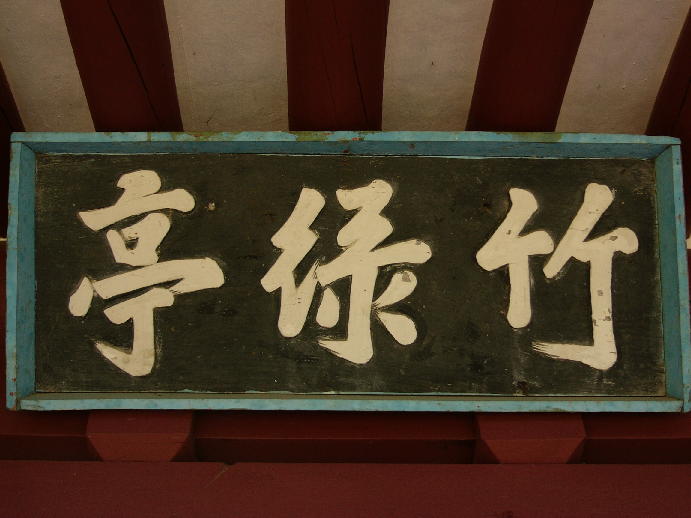 竹綠亭